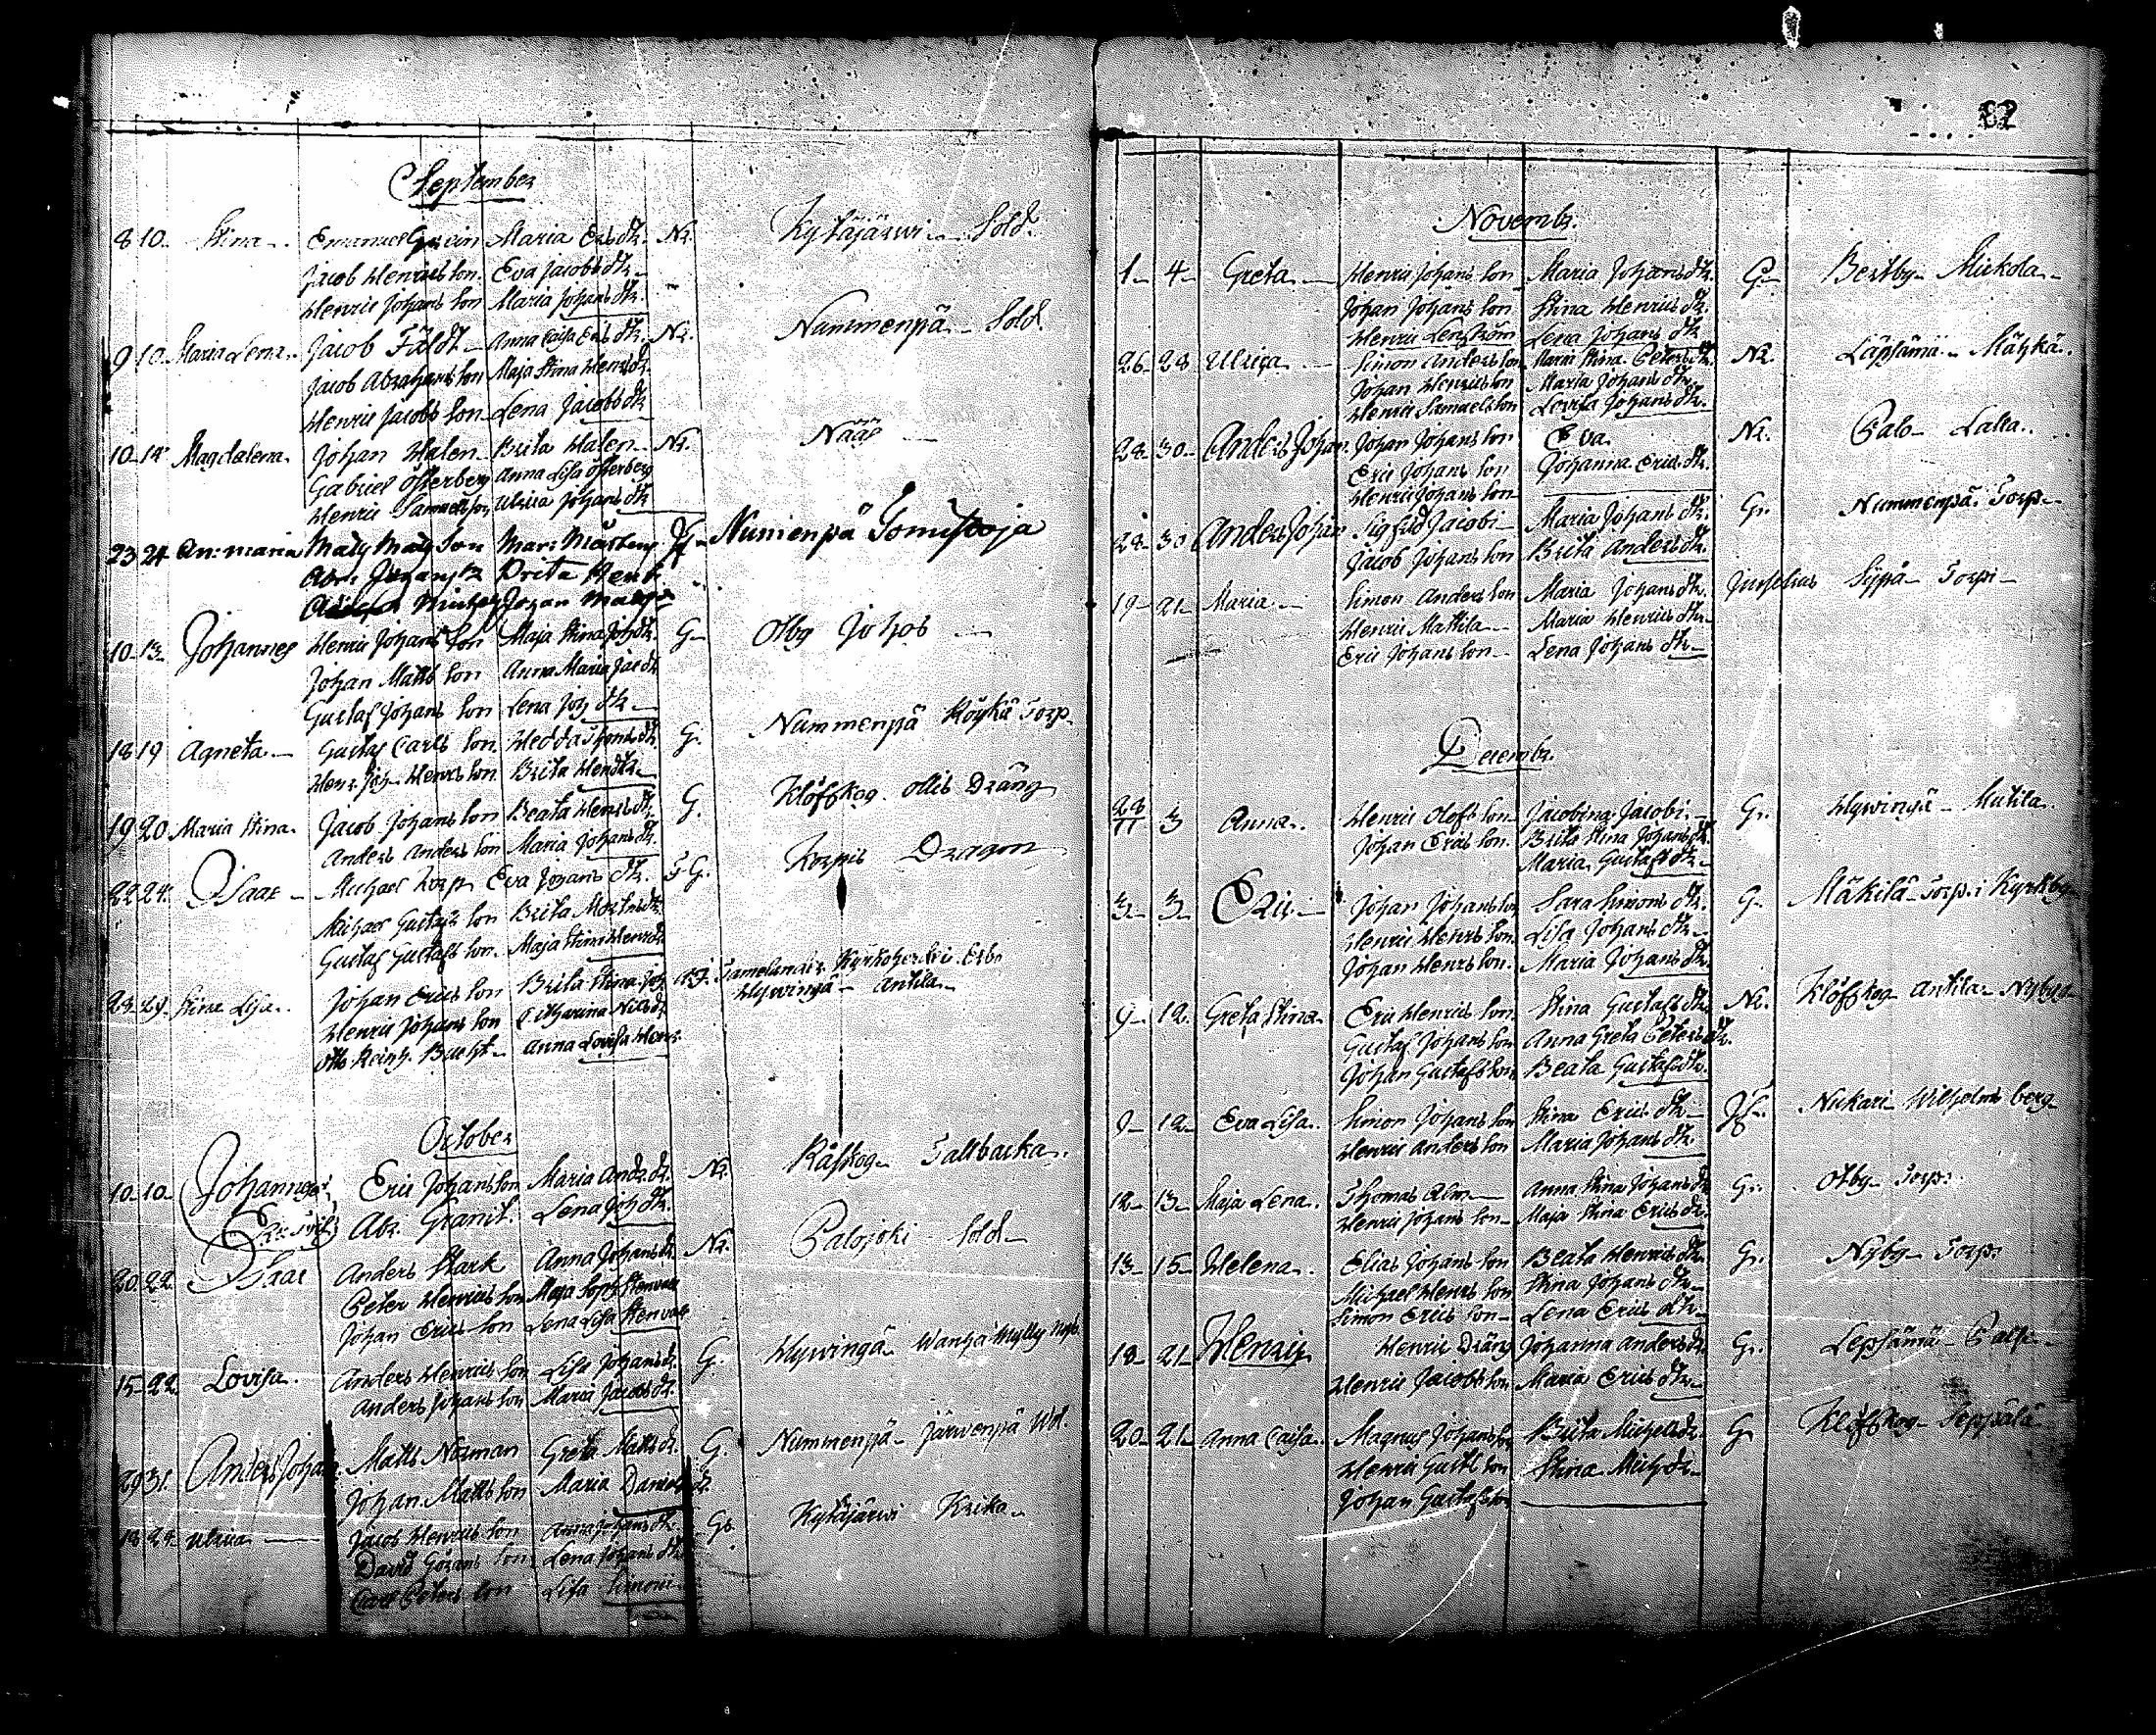 September
8 10 Stina Emanuel Maria Ersdtr. Nr. Kytäjärwi Sold.
Jacob Henrics son. Eva Jacobs dtr
Henric Johans son Maria Johans dtr.
9 10 Maria Lena. Jacob Fäldt Anna Caisa Ers dtr. Nr. Nummenpä Sold.
Jacob Abrahams son Maja Stina Henrsdtr.
Henric Jacobs son Lena Jacobs dtr
10 Magdalena. Johan Halen Brita Halen Nr. Nääs
Gabriel Österberg Anna Lisa Österberg
Henric Samuelsson Ulrica Johans dtr
23 24 An: maria Mattz Mattz Son Mar: Jf Numenpä
10 13 Johannes Henric Johans son Maja Stina Joh dtr. G Otby Johos
Johan Matts son Anna Maria Jac dtr
Gustaf Johans son Lena Joh dtr
18 19 Agneta Gustaf Carls son. Hedda dtr G. Nummenpä Röykä Torp.
Henr. Joh Henrs son Brita Hen dtr
19 20 Maria Stina. Jacob Johans son Beata Henrs dtr G. Klöfskog. Ollis Dräng
Anders Anders son Maria Johans dtr.
22 24. Isaac Michael Korp Eva Johans dtr. G. Korpis Dragon
Michael Gustafs son Brita Mortens dtr
Gustaf Gustafs son. Maja Stina Henrs dr
29. Stina Lisa. Johan Erics son Brita Stina Joh Hywingä Antila
Henric Johans son Catharina Nils dr
Otto Reinh. Bucht Anna Lovisa Henr
October
10 10 Johannes Eric Johans son Maria And. dr. Nr. Råskog Tallbacka.
Abr. Granit. Lena Joh dtr.
20 22 Isaac Anders Stark Anna Johans dr. Nr. Palojoki Sold
Peter Henrics son Maja Soph Stenvall
Johan Erics son Lena Lisa Stenvall
15 22 Lovisa. Anders Henrics son Lisa Johans dr. G. Hywingä Wanha Mylly
Anders Johans son Maria Jacobs dr.
29 31. Anders Johan. Matts Norman Greta Matts dr. G. Nummenpä Järwenpä
Johan Matts son Maria Daniels dr.
18 24 Ulrica Jacob Henrics son Anna Johans dtr. Gr. Kytäjärwi Krika
David Görans son Lena Johans dtr
Carl Peters son Lisa Simons
82
Novembr.
1 4 Greta Henric Johans son Maria Johans dtr. G Bestby Mickola
Johan Johans son Stina Henrics dtr.
Henric Lenström Lena Johans dtr
26 28 Ulrica Simon Anders son Maria Stina Peters dtr. Nr. Läpsämä Mätkä.
Johan Henrics son Maria Johans dtr.
Henric Samuels son Lovisa Johans dtr.
28 30 Anders Johan Johan Johans son Eva. Nr. Palo Lalla.
Eric Johans son Johanna Erics dtr.
Henric Johans son
28 30 Anders Johan Sigfrid Jacobi Maria Johans dtr. Gr. Nummenpä Torp
Jacob Johans son Brita Anders dtr.
19 21 Maria Simon Anders son Maria Johans dtr. Sypä Torp
Henric Mattila Maria Henrics dtr
Eric Johans son Lena Johans dtr
Decembr.
28/11 3 Anna. Henric Olofs son Jacobina Jacobi Gr. Hywingä Mutila.
Johan Erics son. Brita Stina Johans dtr
Maria Gustafs dtr
3 3 Eric Johan Johans son Sara Simons dtr. G. Mäkilä Torp. i Kyrkby
Henric Henrs son Lisa Johans dtr
Johan Henrs son. Maria Johans dtr
9 12 Greta Stina. Eric Henrics son Stina Gustafs dtr Nr. Klöfskog Antila Nybyg
Gustaf Johans son Anna Greta Peters dtr.
Johan Gustafs son Beata Gustafs dtr.
9 12 Eva Lisa. Simon Johans son Stina Erics dtr Jf. Nukari Wilhelms berg
Henric Anders son Maria Johans dtr
12 13 Maja Lena. Thomas Alm Anna Stina Johans dr Gr. Otby Torp.
Henric Johans son Maja Stina Erics dr.
13 15 Helena. Elias Johans son Beata Henrics dtr Gr. Nyby Torp
Michael Henrs son Stina Johans dtr
Simon Erics son Lena Erics dtr
18 21 Henric Henric Dräng Johanna Anders dr Gr. Lepsämä
Henric Jacobs son Maria Erics dtr
20 21 Anna Caisa. Magnus Johans son Brita Michels dr. G Klöfskog Seppälä
Henric Gusts son Stina Mich dr
Johan Gustafs son